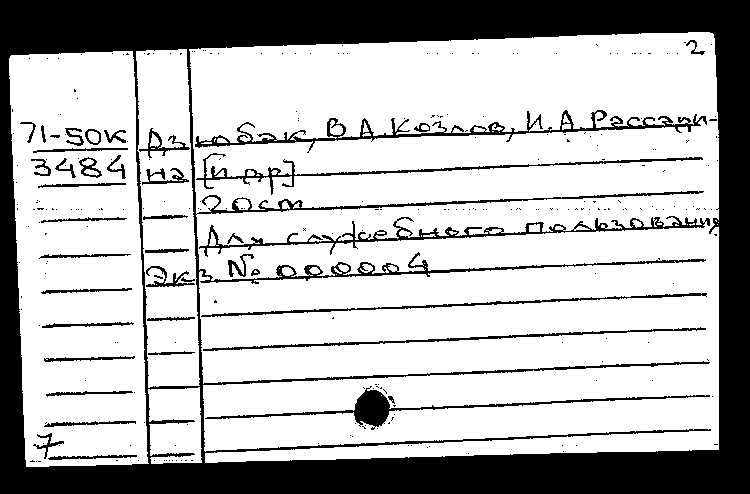 2
71-50к Дзюбак, В.А. Козлов, И.А. Рассади-
3484 на [и др]
20 cm
Для служебного пользования
Экз. № 000004
7